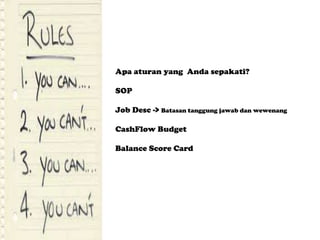 RULES
1. YOU CAN....
2. YOU CAN'T...
3. YOU CAN....
4. YOU CAN'T
Apa aturan yang Anda sepakati?
SOP
Job Desc -> Batasan tanggung jawab dan wewenang
CashFlow Budget
Balance Score Card